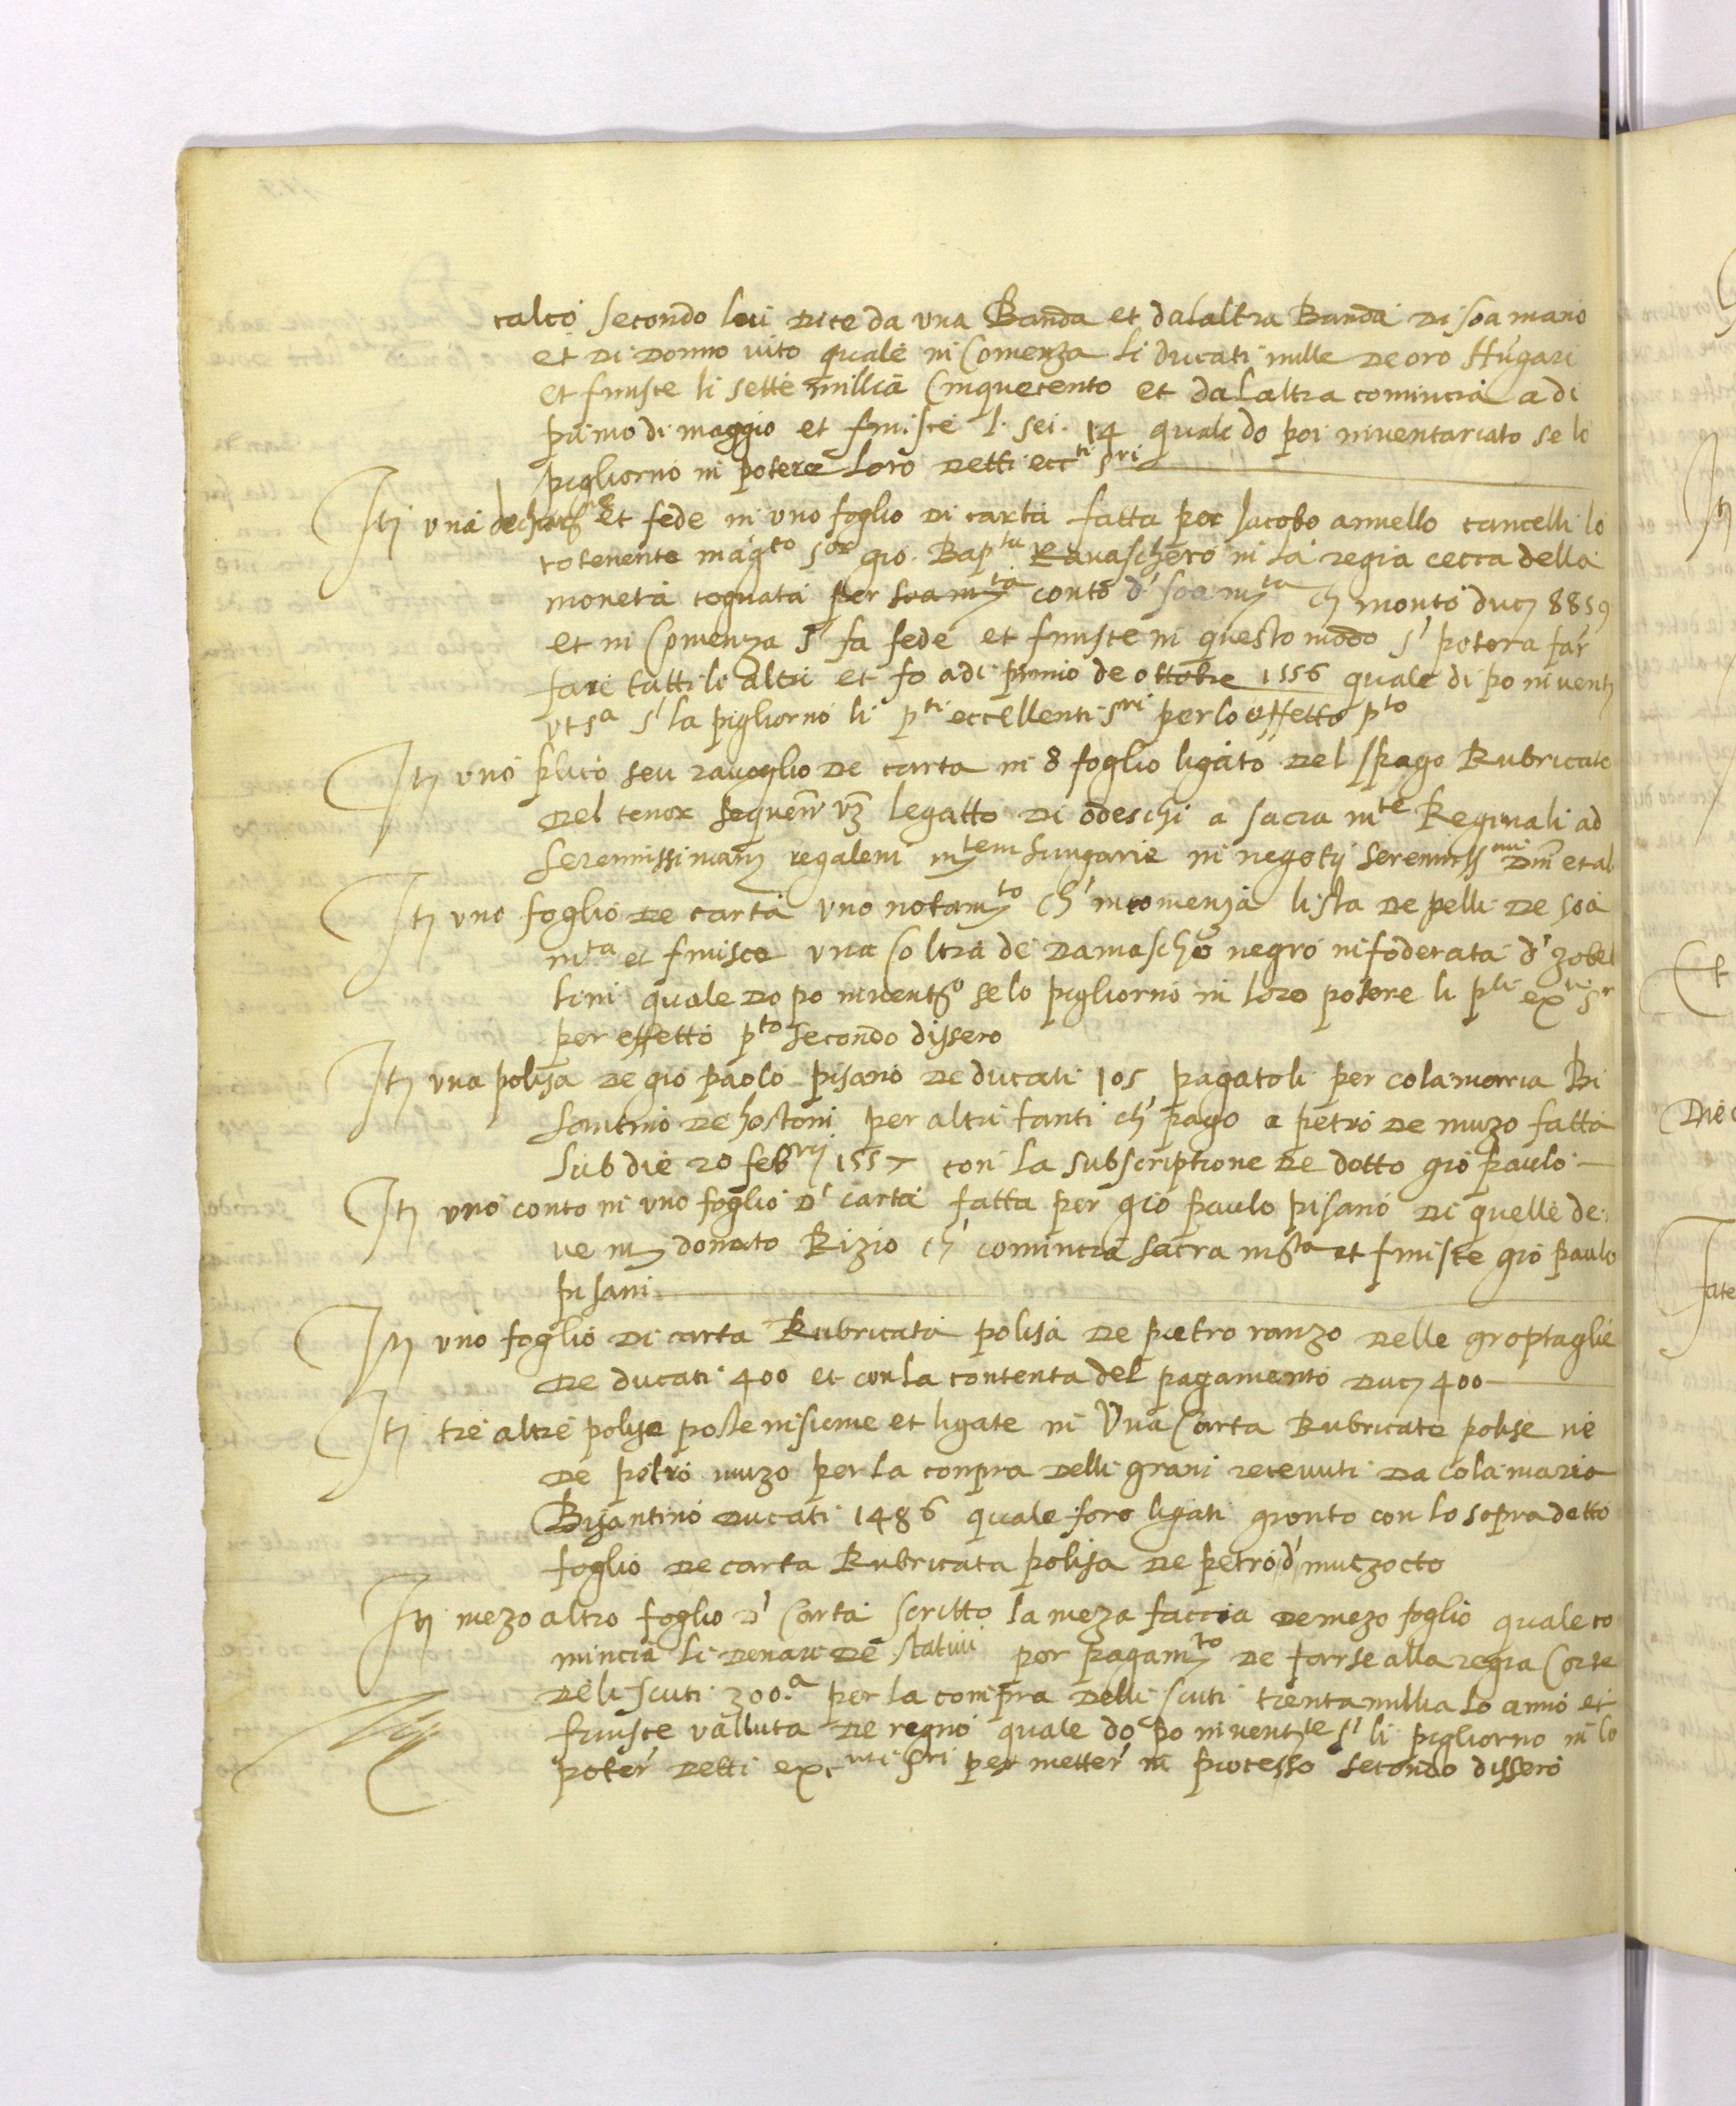 calco secondo lui dice da una Banda et dalaltra Banda di soa mano
et di Donno vito quale in Comenza li ducati mille de oro Hungari
et finisce li sette millia Cinquecento et dalaltra comincia a di
primo di maggio et finisce l. sei. 14 quale do poi inventariato se lo
pigliorno in potere loro detti ecc.ti s.ri
Itm una et fede in uno foglio di carta fatta per Jacobo anuello cancelli lo
cotenente mag.co s.or gio. Bap.ta Ravaschero in la regia cecca della
moneta cognata per soa m.ta conto d' soa m.ta ch monto duc 8859
et in Comenza s' fa fede et finisce in questo modo s' potera far
fare tutti li altri et fo a di primo de ottobre 1556 quale di po invent
ut s.a s' la pigliorno li p.ti eccellenti s.ri per lo effetto p.to
Itm uno plico seu ravoglio de carta in 8 foglio ligato del spago Rubricato
del tenor sequen vz legatto di odeschi a sacra m.te Reginali ad
Serennissimam regalem m.tem hungarie in negotij serenniss.mi Dni et al
Itm uno foglio de carta uno notam.to ch' incomenza lista de pelli de soa
m.ta et finisce una coltra de Damascho negro infoderata d' zobel
lini quale do po invent.o se lo pigliorno in loro potere li p.ti ex.ti s.r
per effetto p.to secondo dissero
Itm una polisa de gio paolo pisano de ducati 105 pagatoli per colamaria Bi
santino de hostoni per altri tanti ch' pago a petro de muzo fatta
sub die 20 feb.rij 1557 con la subscriptione de dotto gio paulo
Itm uno conto in uno foglio d' carta fatta per gio paulo pisano di quelle de
ve m donato Rizio ch' comincia sacra m.ta et finisce gio paulo
pisani
Itm uno foglio di carta Rubricata polisa de pietro ranzo delle groptaglie
de ducati 400 et con la contenta del pagamento duc 400
Itm tre altre polise poste insieme et ligate in una Carta Rubricate polise ne
de petro muzo per la conpra delli grani recevuti da cola maria
Bisantino ducati 1486 quale foro ligati gionto con lo sopra detto
foglio de carta Rubricata polisa de petro d' mutzocto
Itm mezo altro foglio d' Carta scritto la meza faccia de mezo foglio quale co
mincia li denari de per pagam.to de farse alla regia Corte
deli scuti 300.a per la compra delli scuti trenta millia lo anno et
finisce valluta de regno quale do po invent.te s' li pigliorno in lo
poter detti ex.mi s.ri per metter in processo secondo dissero